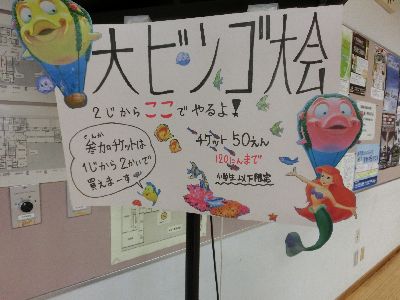 大ビンゴ大会
2じから ここ でやるよ!
さんか
参加チケットは
1じから2かいで
買えまーす
チケット 50えん
120にんまで
小学生以下限定